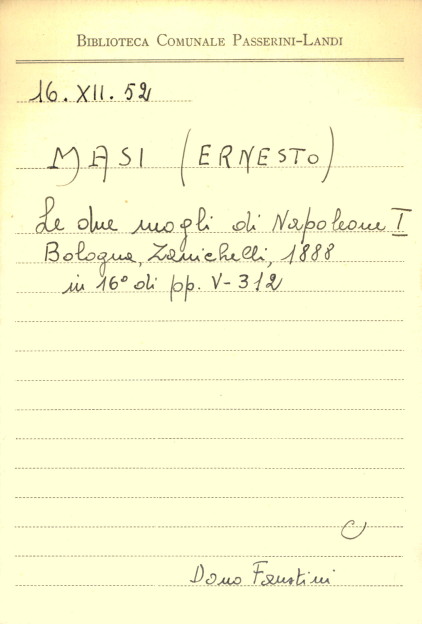 BIBLIOTECA COMUNALE PASSERINI-LANDI
16. XII. 52
MASI (ERNESTO)
Le due mogli di Napoleone I
Bologna, Zanichelli, 1888
in 16° di pp. V-312
C
Dono Faustini